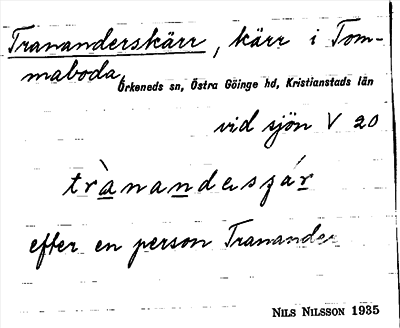 Trananderskärr, kärr i Tom-
maboda,
Örkeneds sn, Östra Göinge hd, Kristianstads län
vid sjön V 20
efter en person Tranander
NILS NILSSON 1935